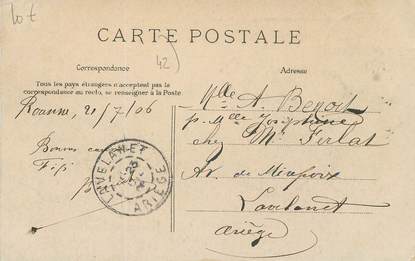 lot
CARTE POSTALE
42
Correspondance
Adresse
Tous les pays étrangers n'acceptent pas la
correspondance au recto, se renseigner à la Poste
Roanne, 21/7/06
Bonne
Fifi
LAVELANET
23
ARIÈGE
Mlle A. Benoit
p. Mlle Joséphine
chez Mr Ferlat
Av. de Mirepoix
Lavelanet
Ariège